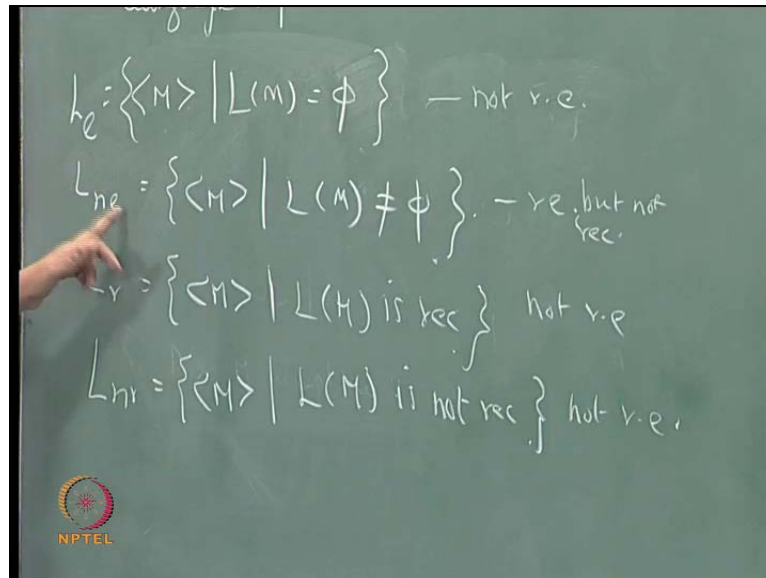 L_e = {<M> | L(M) = ϕ} — not r.e.
L_ne = {<M> | L(M) ≠ ϕ}. — re. but not rec.
r = {<M> | L(M) is rec} not r.e
L_nr = {<M> | L(M) is not rec} not r.e.
NPTEL